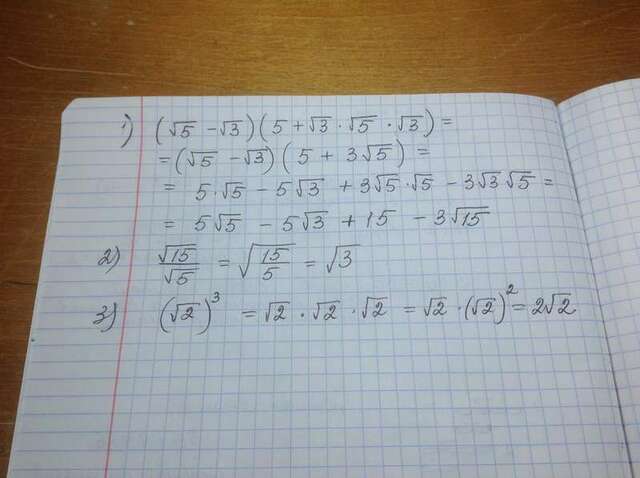 1) (√5 - √3)(5 + √3 · √5 · √3) =
= (√5 - √3)(5 + 3√5) =
= 5·√5 - 5√3 + 3√5·√5 - 3√3√5 =
= 5√5 - 5√3 + 15 - 3√15
2) √15/√5 = √(15/5) = √3
3) (√2)³ = √2 · √2 · √2 = √2 · (√2)² = 2√2